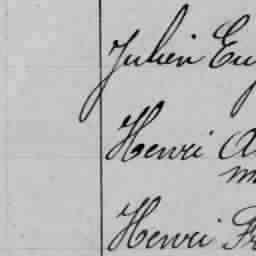 Julien Eu
Henri A
m
Henri Fr